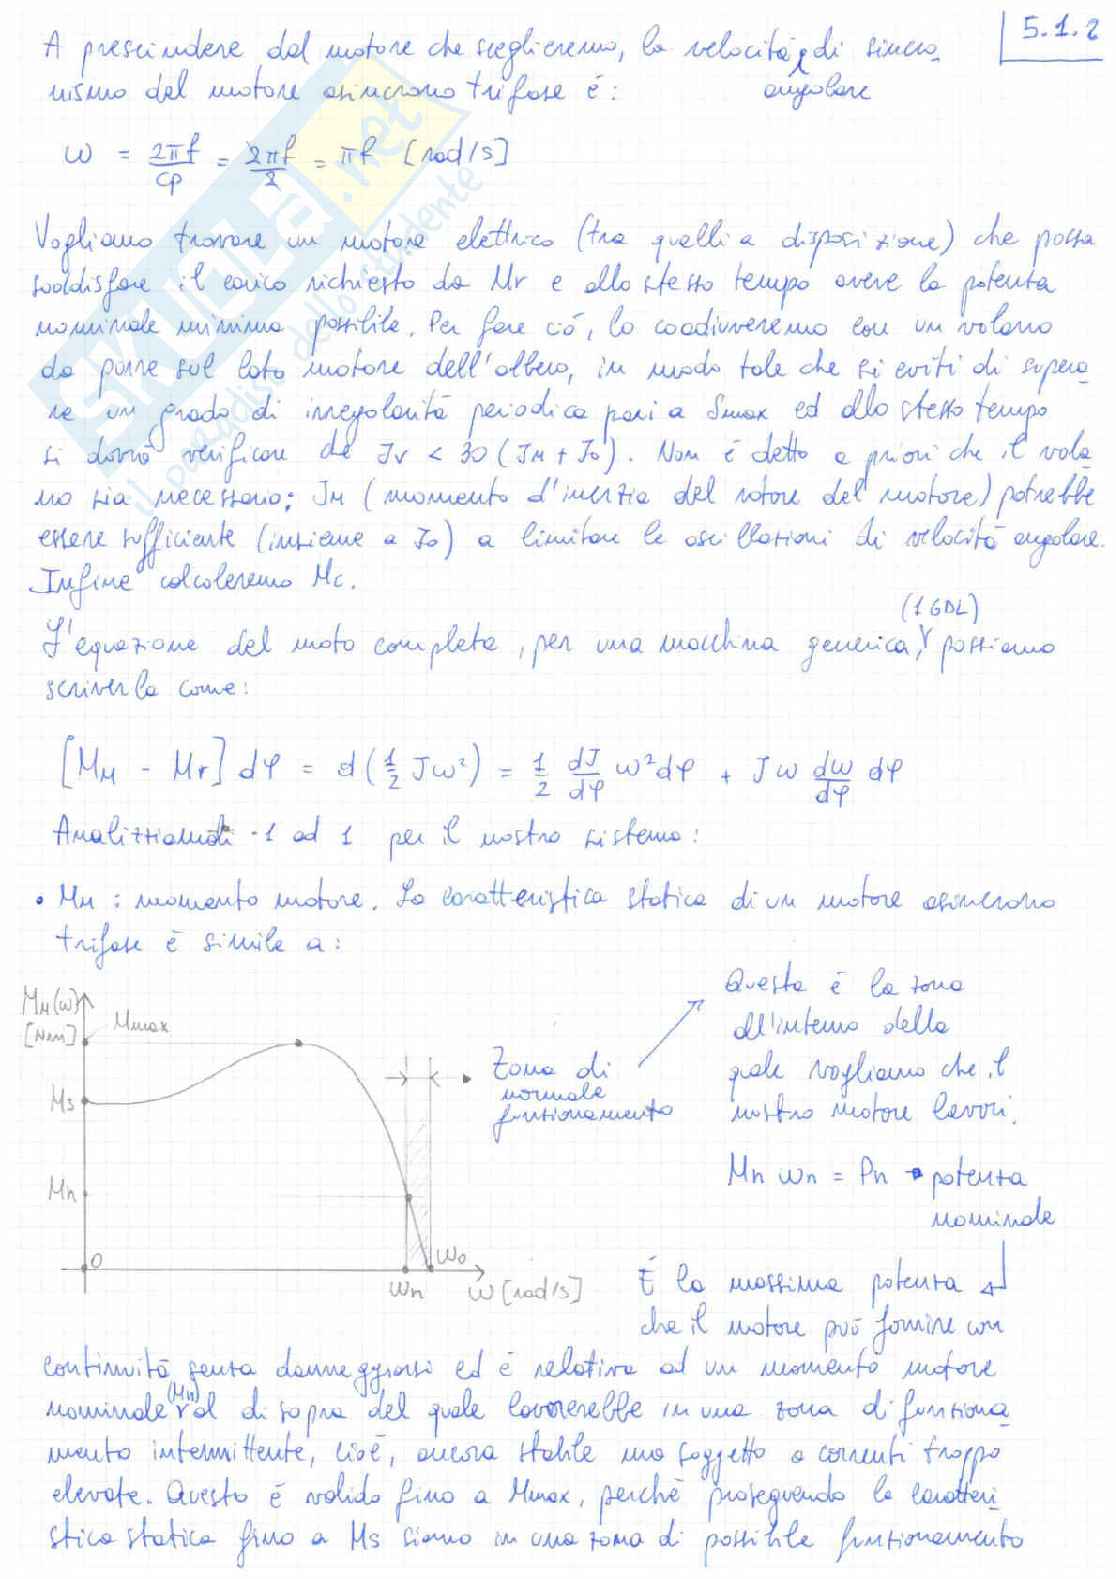 5.1.2
A prescindere dal motore che sceglieremo, la velocità angolare di sincro_
nismo del motore asincrono trifase è:
ω = 2πf/cp = 2πf/2 = πf [rad/s]
Vogliamo trovare un motore elettrico (tra quelli a disposizione) che possa
soddisfare il carico richiesto da Mr e allo stesso tempo avere la potenza
nominale minima possibile. Per fare ciò, lo coadiuveremo con un volano
da porre sul lato motore dell'albero, in modo tale che si eviti di supera_
re un grado di irregolarità periodica pari a δmax ed allo stesso tempo
si dovrà verificare che Jv < 30 (JM + Jo). Non è detto a priori che il vola_
no sia necessario; JM (momento d'inerzia del rotore del motore) potrebbe
essere sufficiente (insieme a Jo) a limitare le oscillazioni di velocità angolare.
Infine calcoleremo Mc.
L'equazione del moto completa, per una macchina generica, (1 GDL) possiamo
scriverla come:
[MM - Mr] dφ = d(1/2 Jω²) = 1/2 dJ/dφ ω²dφ + Jω dω/dφ dφ
Analizziamoli 1 ad 1 per il nostro sistema:
• MM : momento motore. La caratteristica statica di un motore asincrono
trifase è simile a:
MM(ω)
[Nm]
Mmax
Ms
Mn
0
ωn
ω0
ω [rad/s]
Zona di
normale
funzionamento
Questa è la zona
all'interno della
quale vogliamo che il
nostro motore lavori.
Mn ωn = Pn → potenza
nominale
È la massima potenza
che il motore può fornire con
continuità senza danneggiarsi ed è relativa ad un momento motore
nominale (Mn) al di sopra del quale lavorerebbe in una zona di funziona_
mento intermittente, cioè, ancora stabile ma soggetto a correnti troppo
elevate. Questo è valido fino a Mmax, perchè proseguendo la caratteri_
stica statica fino a Ms siamo in una zona di possibile funzionamento
SKUOLA.net
il paradiso dello studente